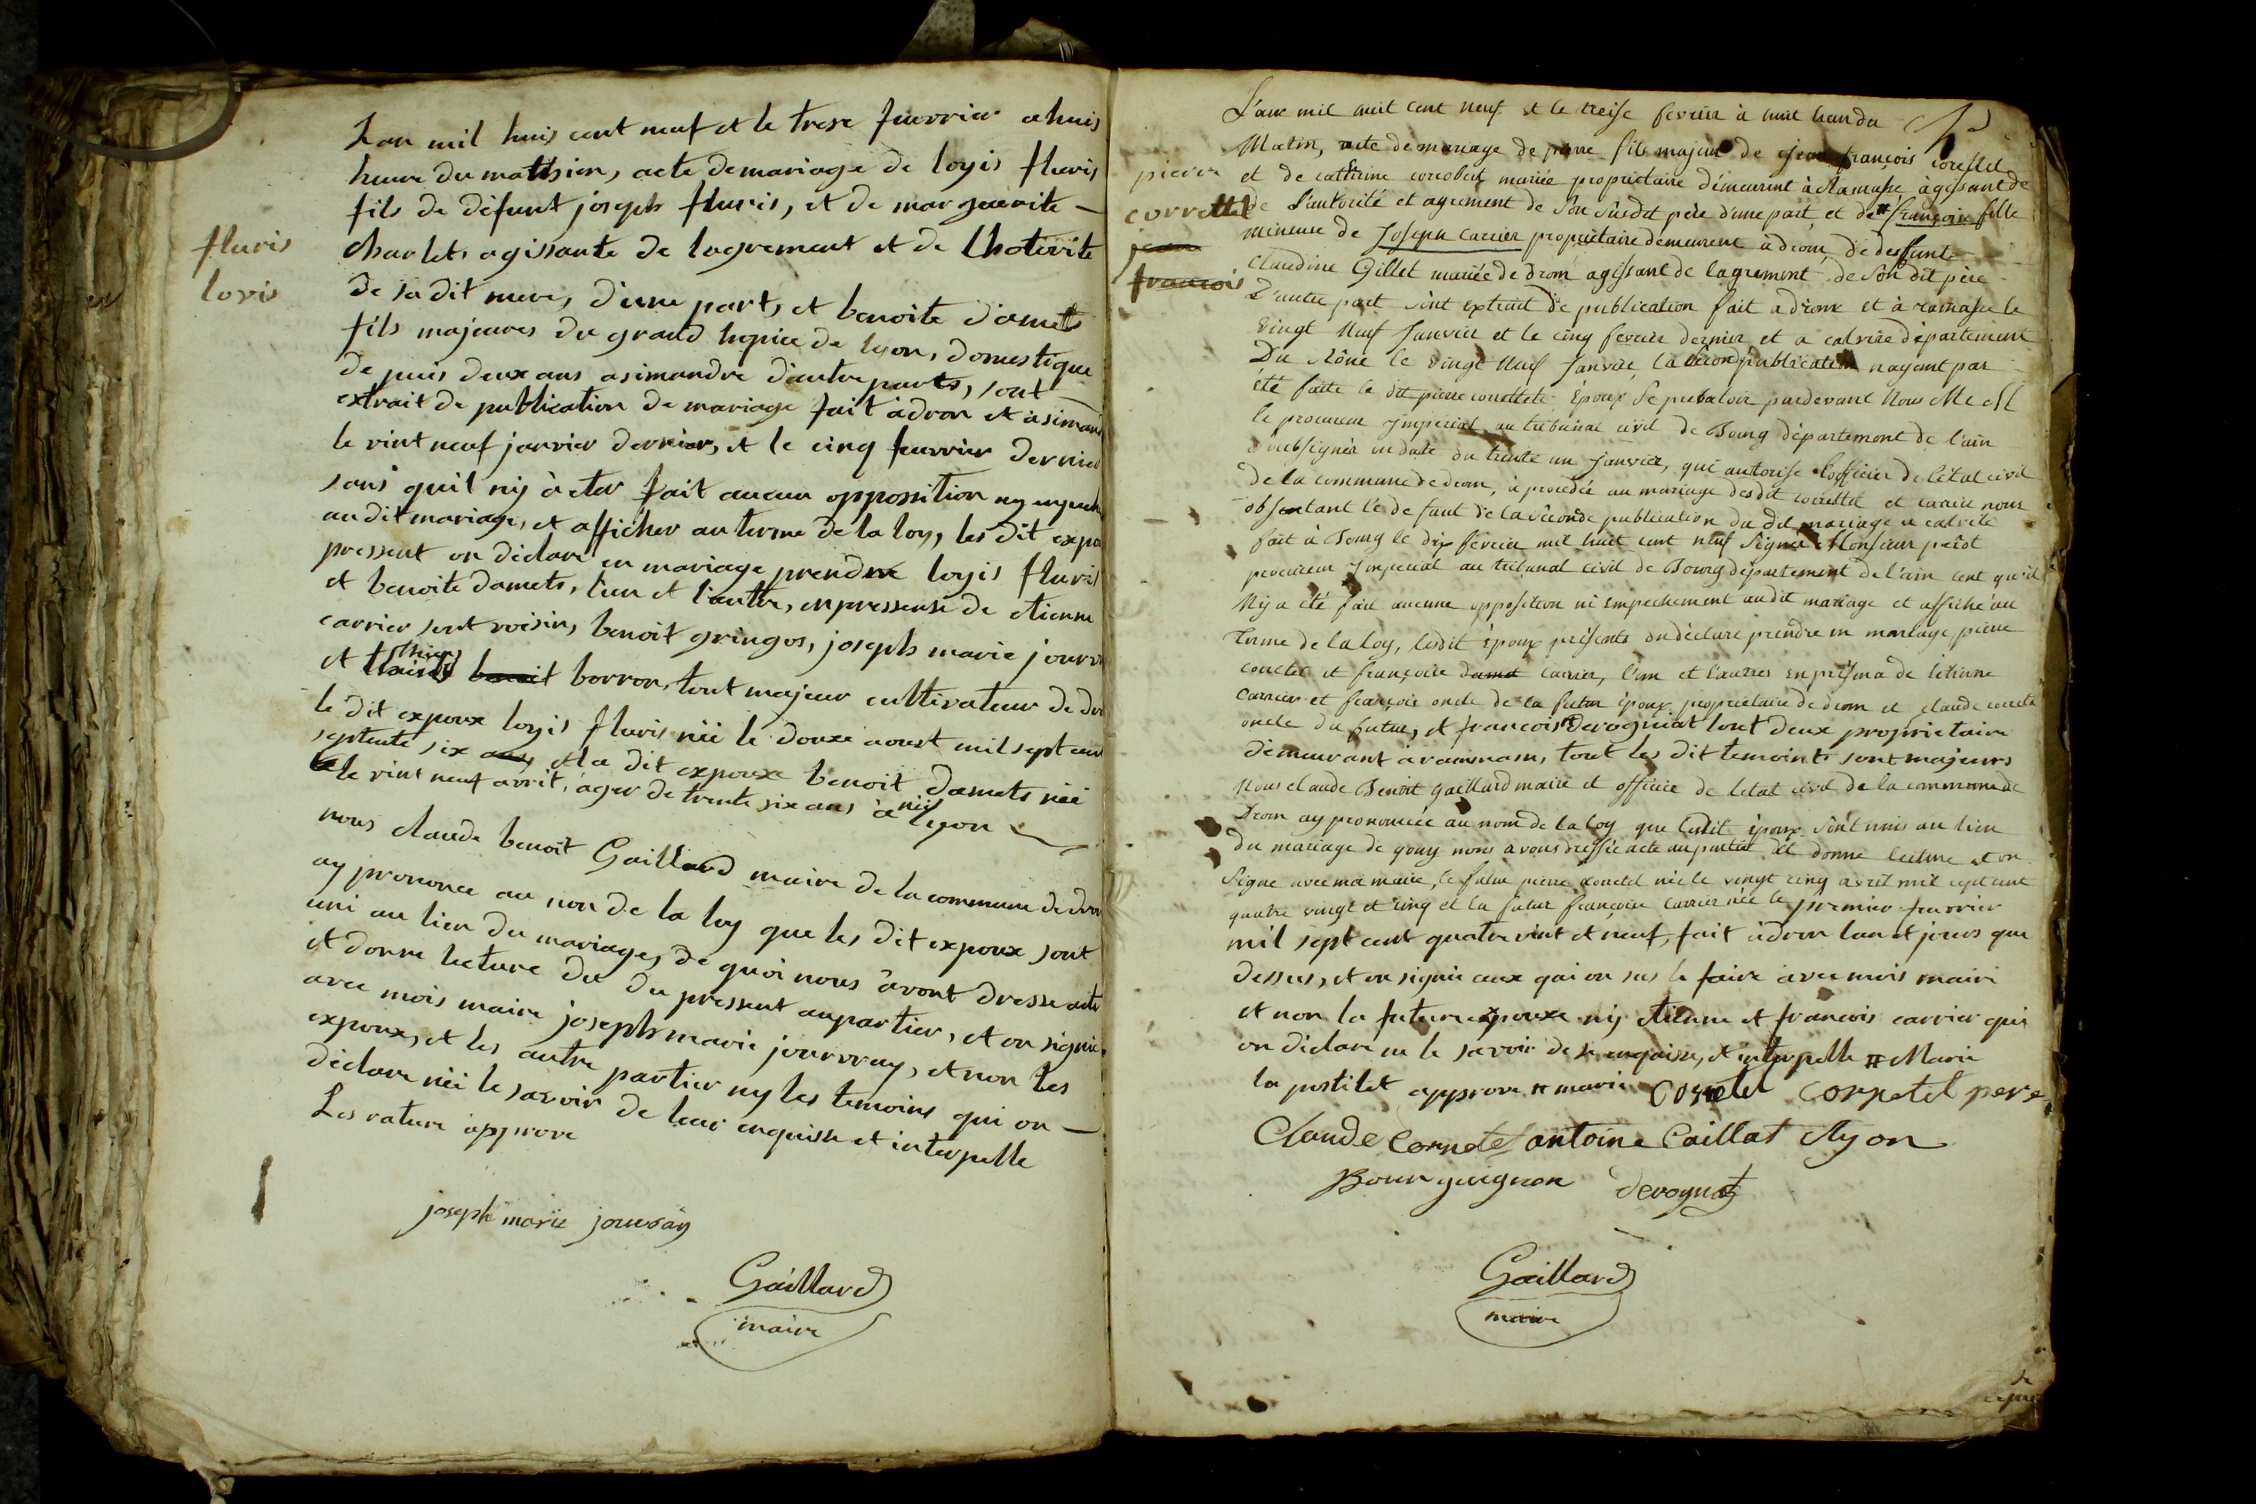 fluris
lovis
Lan mil huis cent neuf et le trese feuvrier a huis
heure du mattsien, acte de mariage de loyis fluris
fils de défunt joseph fluris, et de margueritte
charlet, agissante de lagrement et de Lhoterite
de sa dit mere, d'une part, et benoite damets
fils majeures du grand hopice de lyon, domestique
de puis deux ans asimandre d'autre parts, sont
extrait de publication de mariage fait à dron et à simand
le vint neuf janvier dernier, et le cinq feuvrier dernier
sans quil nij à etar fait aucun oppossition ny enpech
au dit mariage, et afficher au terme de la loy, les dit expou
pressent on déclare en mariage prendre loyis fluris
et benoite damets, l'un et l'autre, en pressense de etienne
carrier sent voisin, benoit gringos, joseph marie jourv
et borron, tout majeur cultivateur de dro
le dit expoux loyis fluris néé le douxe aoust mil sept cen
septente six et la dit expouxe benoit damets néé
le vint neuf avrit, àger de trente six ans à néé lyon
nous claude benoit Gaillard maire de la commune de dron
ay prononce au non de la loy que les dit expoux sont
uni au lien du mariage, de quoi nous àvont dresse acte
et donne lecture du du pressent aupartier, et on signié
avec mois maire joseph marie jourvray, et non les
expoux, et les autre partier ny les temoins qui on
déclare néé le savoir de leur enquisse et interpelle
Les rature approve
joseph marie jouvray
Gaillard
maire
pierre
correttet
jean
francois
L'an mil huit cent neuf et le treise fevrier à huit heur du
Matin, acte de mariage de pierre fils majeur de jean françois corettet
et de catherine mariée proprietaire démeurent à Ramasse, agissant de
de l'autorité et agrement de son susdit père d'une part, et de françoise fille
mineure de Joseph Carrier proprietaire demeurent à drom, de deffunte
Claudine Gillet mariée de drom agissant de lagrement de son dit père
D'autre part sont extrait de publication fait a drom et à ramasse le
vingt neuf Janvier et le cinq fevrier dernier et a calvire département
Du Rône le vingt neuf Janvier, la second publication nayant pas
été faite le dit pierre correttet époux pardevant Nous
le procureur imperial au tribunal civil de Bourg département de l'ain
en date du trente un janvier, qui autorise l'officier de l'état civil
de la commune de drom, à procedée au mariage desdit correttet et carrier nous
obstant le de faut de la seconde publication du dit mariage a calvire
fait à Bourg le dix fevrier mil huit cent neuf Signer Monsieur
procureur Imperial au tribunal civil de Bourg département de l'ain cent qu'il
Nij a été fait aucune opposition ni empechement audit mariage et affiché au
terme de la loy, lesdit époux présents on déclaré prendre en mariage pierre
corettet et françoise carrier, l'un et l'autres en présma de Etienne
Carrier et françois oncle de la futur époux proprietaire de drom et claude
oncle du futur, et francois devogniat tout deux proprietaire
démeurant à rammam, tout les dit temoint sont majeurs
Nous claude Benoit Gaillard maire et officier de letat civil de la commune de
Drom ay prononcée au nom de la loy que ledit époux sont unis au lien
du mariage de quoy nous avons dressée acte aupartié et donne lecture et on
Signe avec moi maire, le futur pierre corretet née le vingt cinq avril mil sept cent
quatre vingt et cinq et la futur françoise carrier née le premier feuvrier
mil sept cent quatre vint et neuf, fait à dron lan et jours que
dessus, et on signié ceux qui on sus le faire avec mois maire
et non la future epouxe nij etienne et francois carrier qui
on déclare ne le savoir de se enquisse, et interpelle # Marie
la postilet approve # marie corretet corretet pere
Claude Corretet antoine Caillat Lyon
Bourguignon devognat
Gaillard
maire